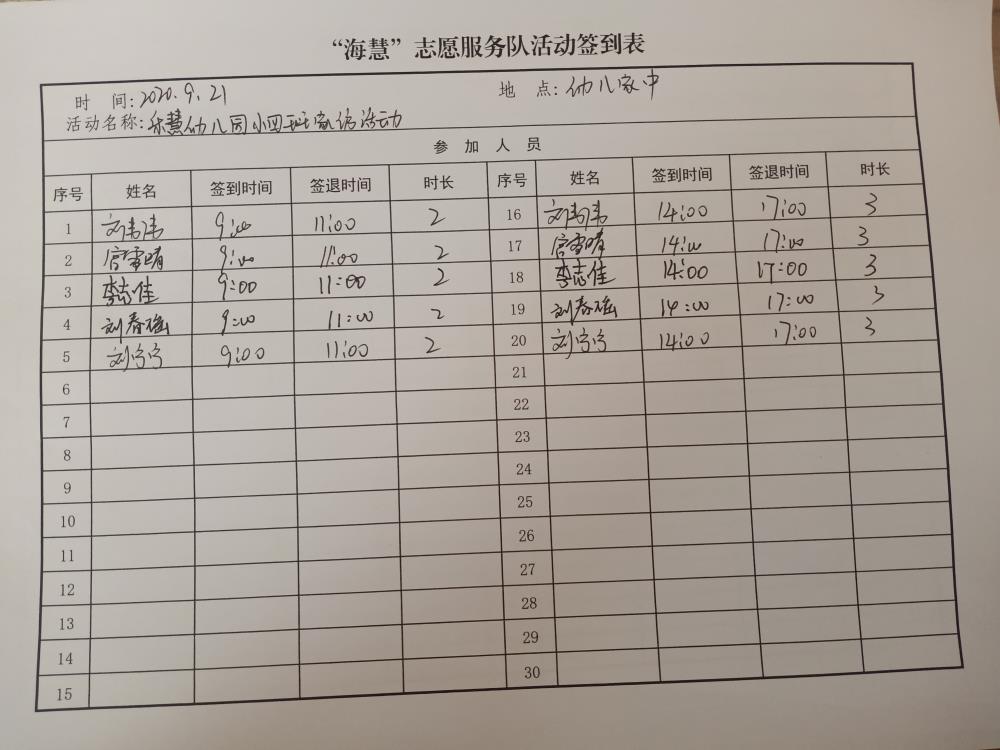 “海慧”志愿服务队活动签到表
时 间: 2020.9.21 地 点: 幼儿家中
活动名称: 乐慧幼儿园小四班家访活动
参 加 人 员
序号 姓名 签到时间 签退时间 时长 序号 姓名 签到时间 签退时间 时长
1 刘伟伟 9:00 11:00 2 16 刘伟伟 14:00 17:00 3
2 雪晴 9:00 11:00 2 17 雪晴 14:00 17:00 3
3 李志佳 9:00 11:00 2 18 李志佳 14:00 17:00 3
4 刘春瑶 9:00 11:00 2 19 刘春瑶 14:00 17:00 3
5 刘宁宁 9:00 11:00 2 20 刘宁宁 14:00 17:00 3
6 21
7 22
8 23
9 24
10 25
11 26
12 27
13 28
14 29
15 30